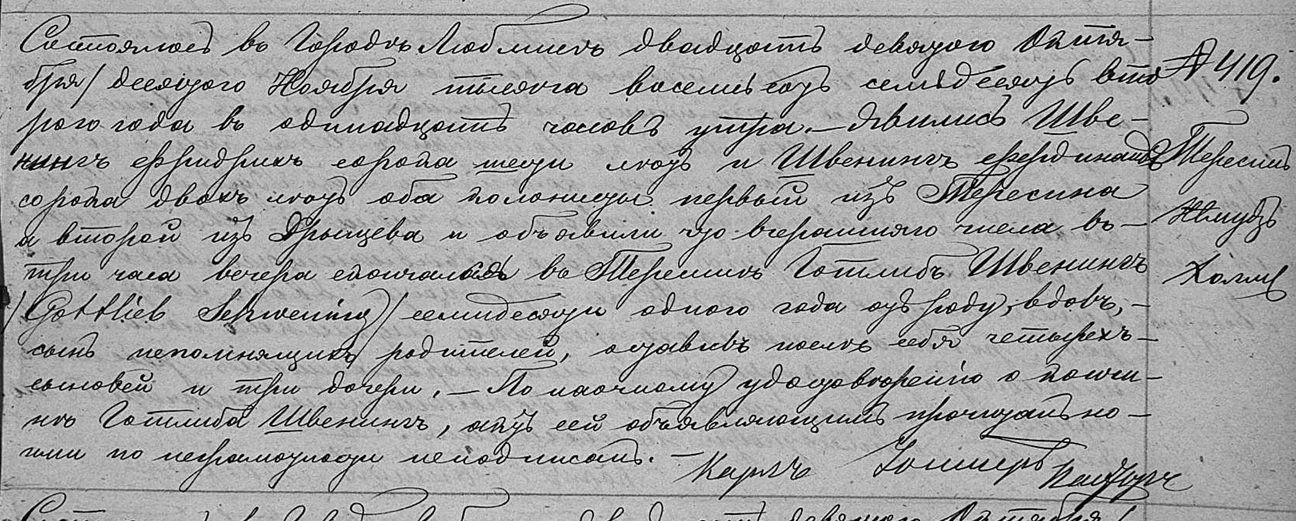 Состоялось въ Городѣ Люблинѣ двадцать девятаго Октя-
бря/ десятаго Ноября тысяча восемьсотъ семьдесятъ вто
рого года въ одинадцать часовъ утра. – Явились Шве-
нингъ Фридрихъ сорока шести лѣтъ и Швенингъ Фердинандъ
сорока двохъ лѣтъ оба колонисты первый изъ Тересина
а второй изъ и объявили что вчерашняго числа въ –
три часа вечера скончался въ Тересинѣ Готлибъ Швенингъ
/Gottlieb Schwening/ семидесяти одного года отъ роду, вдовъ, –
сынъ непомнящихъ родителей, оставивъ после себя четырехъ –
сыновей и три дочери. – По наочному удостоверению о кончи-
нѣ Готлиба Швенингъ, актъ сей объявляющимъ прочитанъ но –
ими по неграмотности неподписанъ. –
Карлъ Пасторъ
№ 419.
Тересинъ